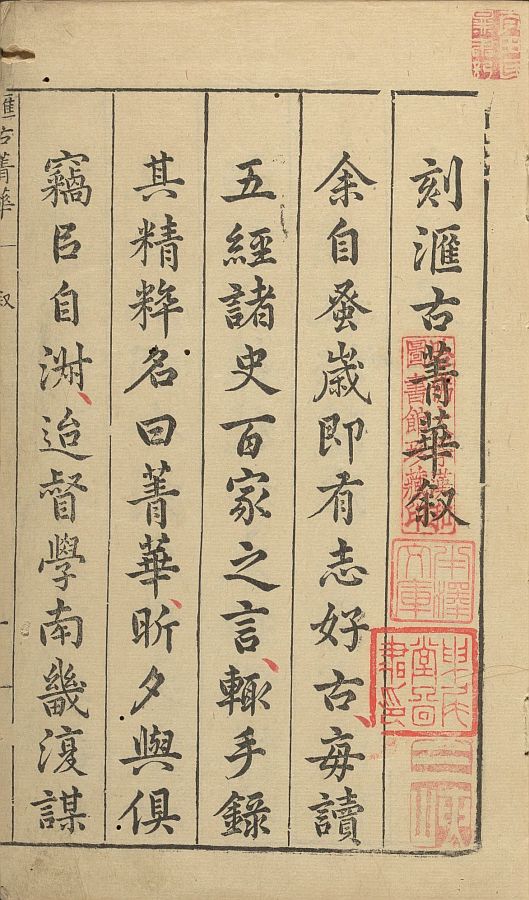 刻滙古菁華叙
余自蚤歲即有志好古、毎讀
五經諸史百家之言、輒手錄
其精粹名曰菁華、昕夕與俱
竊㠯自澍、迨督學南畿復謀
滙古菁華
叙
一